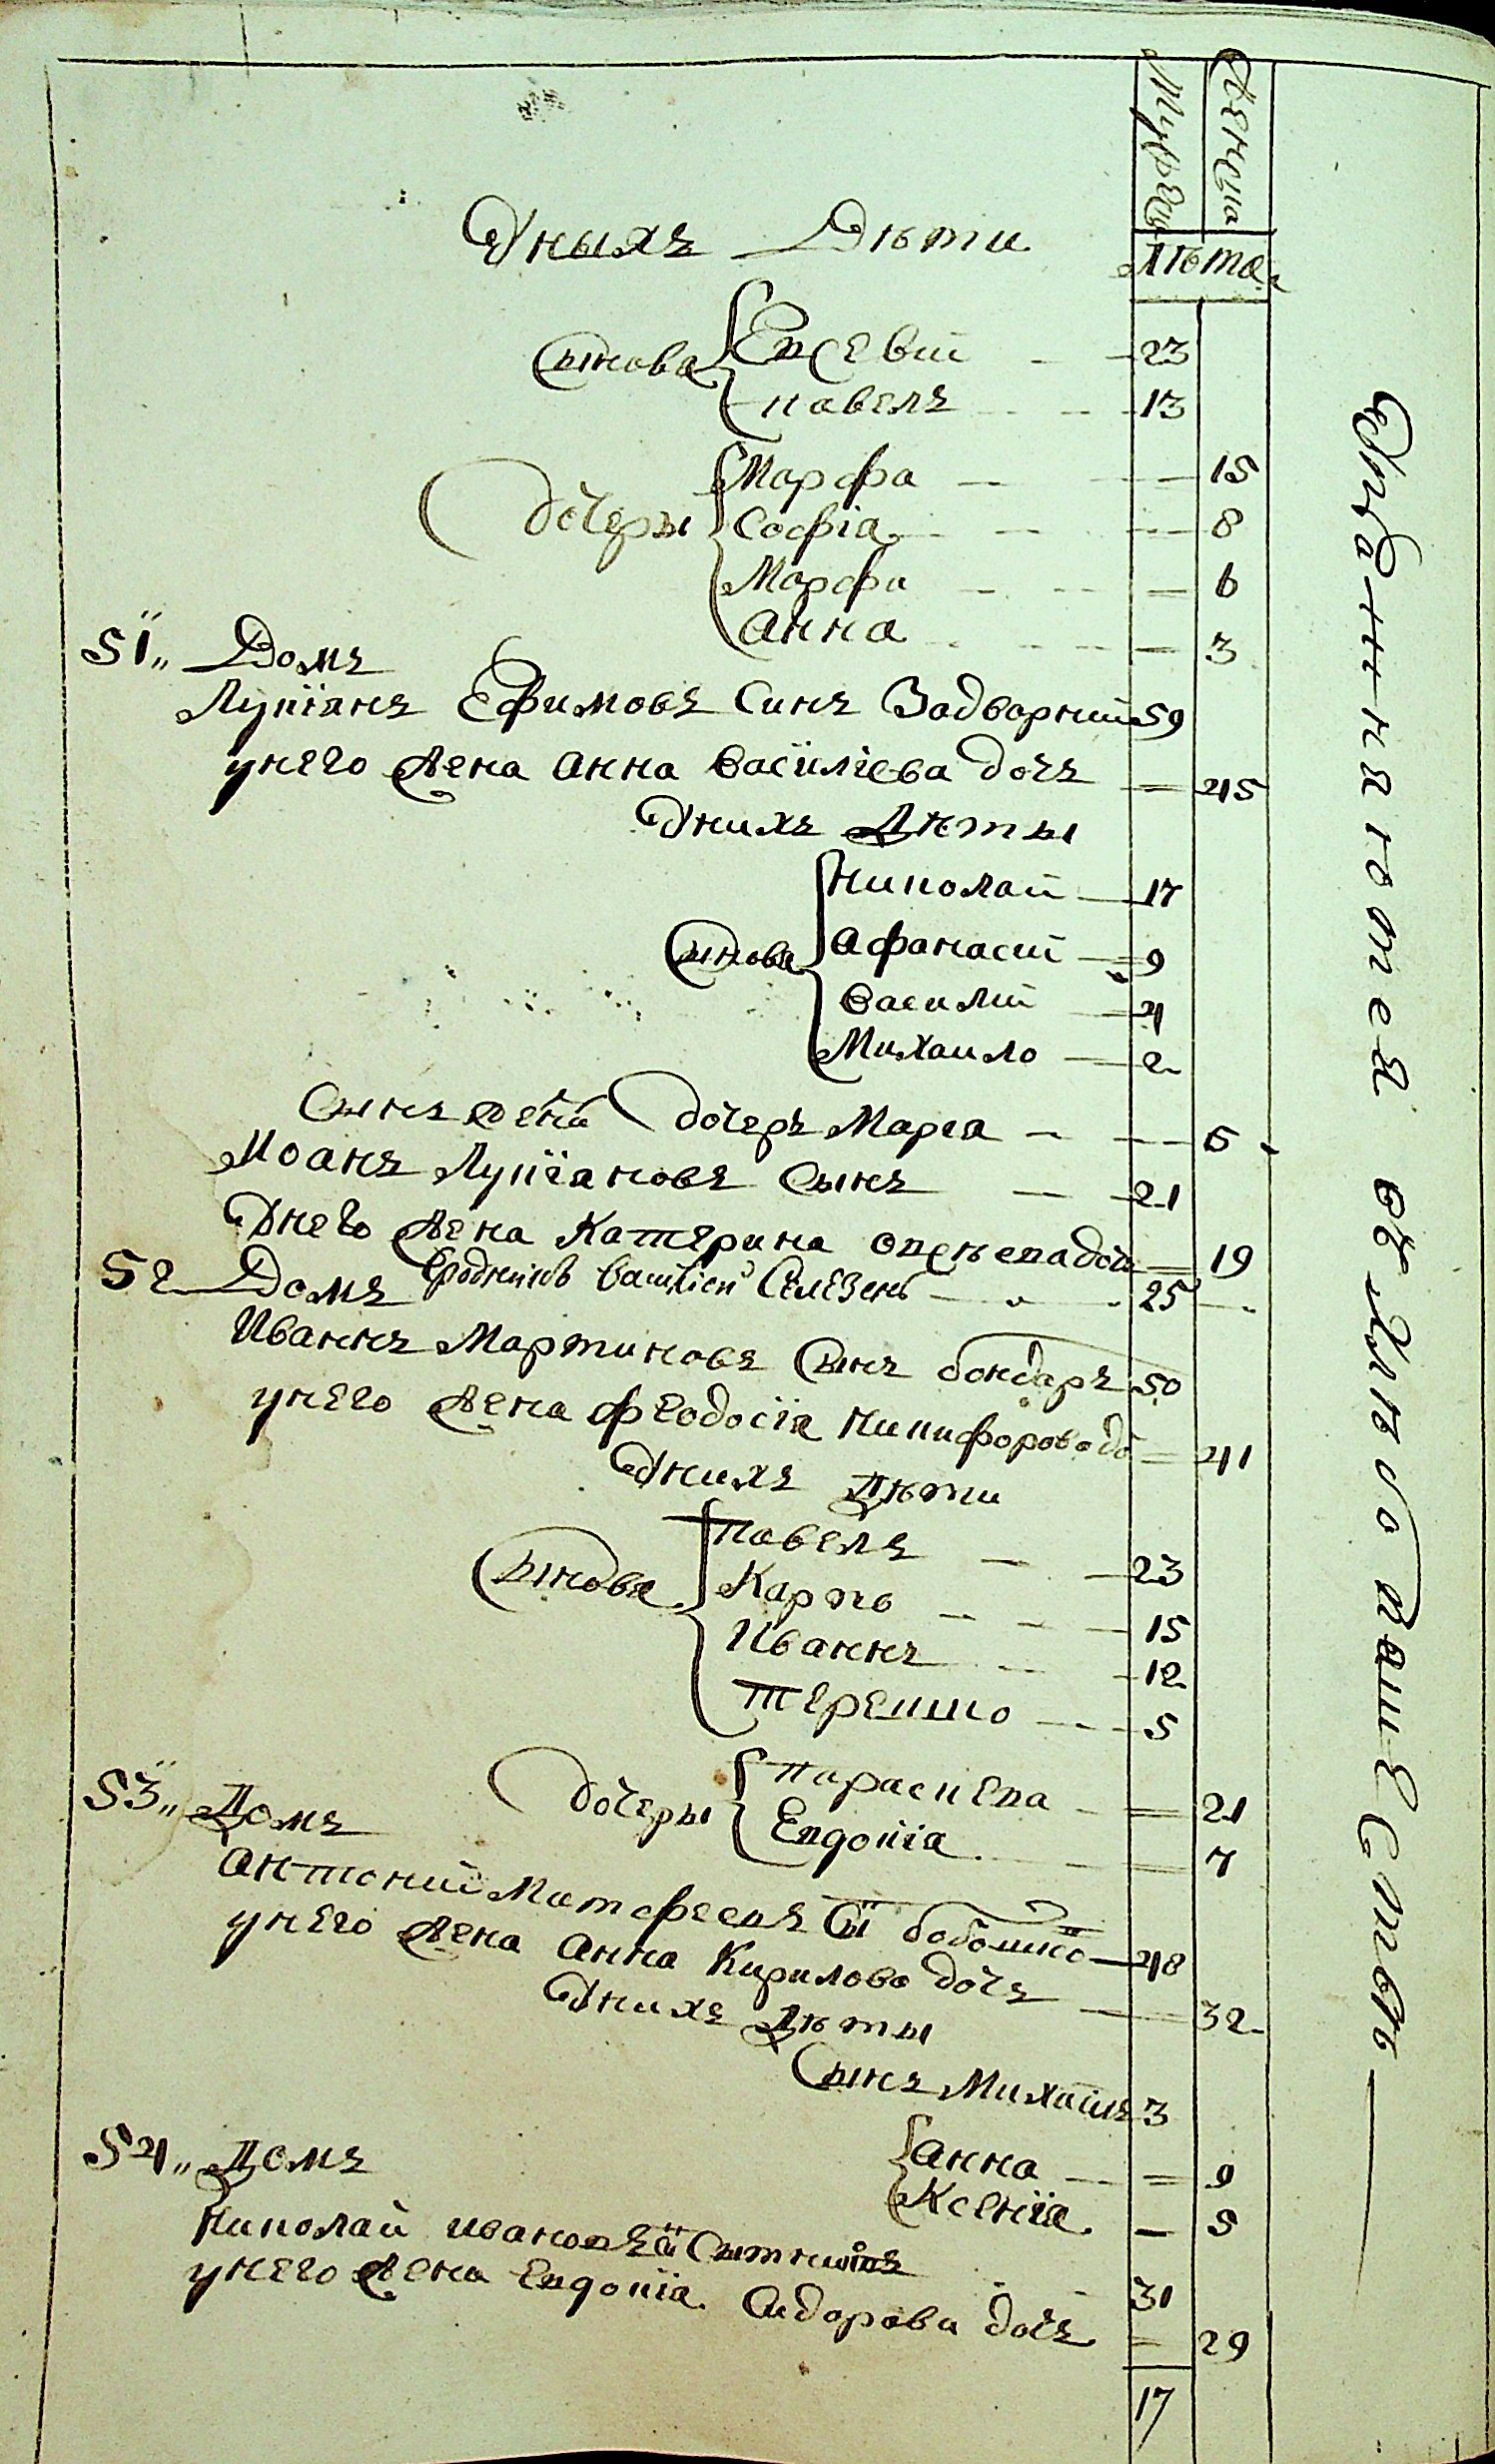 Мужеска
Женска
лѣта
Уныхъ Дѣти
Сынове Евсевии 23
павелъ 13
Дочеры Марфа 15
Софіа 8
Марфа 6
Анна 3
51 Домъ
Лукіанъ Ефимовъ Синъ Задворний 59
унего жена Анна Василіева дочъ 45
Унихъ Дѣты
Синове Николай 17
Афанасий 9
Василий 4
Михаило 2
дочеръ Мария 6
Иоанъ Лукіановъ Сынъ 21
Унего жена Катерина дочъ 19
52 Домъ Селезенъ 25
Иваннъ Мартиновъ Сынъ бондаръ 50
унего жена феодосіа Никифорова до 41
Унихъ Дѣти
Сынове Павелъ 23
Карпъ 15
Иваннъ 12
Терешко 5
дочеры Параскева 21
Евдокіа 7
53 Домъ
Антоний Матфеевъ Сы бобошко 48
унего жена Анна Кирилова дочъ 32
Унихъ Дѣты
Сынъ Михаилъ 3
Анна 9
Ксеніа 5
54 Домъ
Николай Ивановъ Сытникъ 31
унего жена Евдокіа Сидорова дочъ 29
17